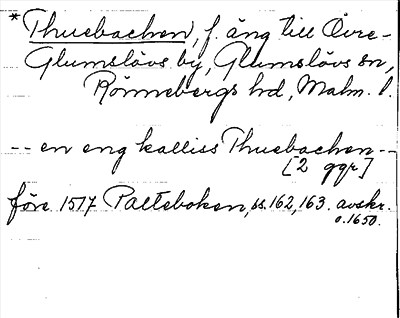 *Thuebachen, f. äng till Övre-
Glumslövs by, Glumslövs sn,
Rönnebergs hd, Malm. l.
-- en eng kalliss Thuebachen --
[2 ggr]
före 1517 Palteboken, ss. 162, 163. avskr.
o. 1650.